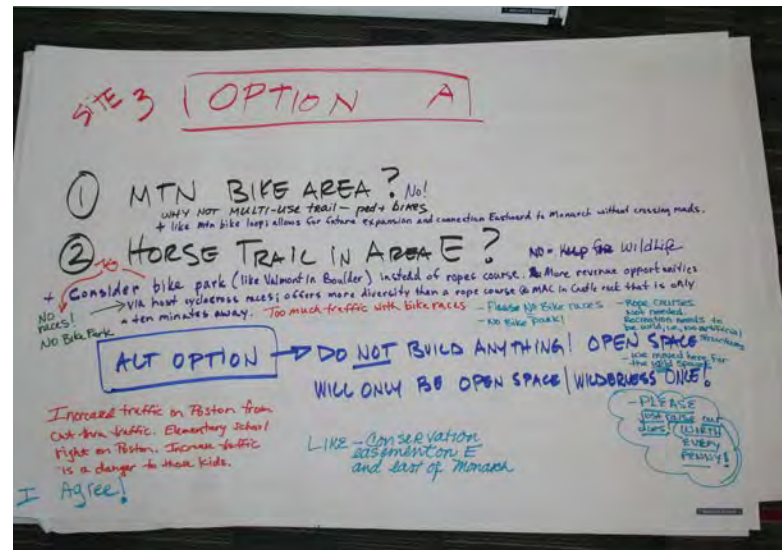 SITE 3 OPTION A
① MTN BIKE AREA? No!
WHY NOT MULTI-USE trail - ped + BIKES
+ like mtn bike loop; allows for future expansion and connection Eastward to Monarch without crossing roads.
② HORSE TRAIL IN AREA E? NO - Keep for Wildlife
+ Consider bike park (like Valmont in Boulder) instead of ropes course. More revenue opportunities
via host cyclocross races; offers more diversity than a rope course @ MAC in Castle rock that is only
ten minutes away. Too much traffic with bike races
NO
races!
No Bike Park
- Please No Bike races
- No Bike Park!
- Rope courses
Not needed.
Recreation needs to
be wild, i.e., no artificial
structures
- We moved here for
the wild space
ALT OPTION → DO NOT BUILD ANYTHING! OPEN SPACE
WILL ONLY BE OPEN SPACE | WILDERNESS ONCE!
Increased traffic on Poston from
cut-thru traffic. Elementary School
right on Poston. Increase traffic
is a danger to those kids.
I Agree!
LIKE - Conservation
easement on E
and east of Monarch
- PLEASE
just raise our
dues. (WORTH
EVERY
PENNY!